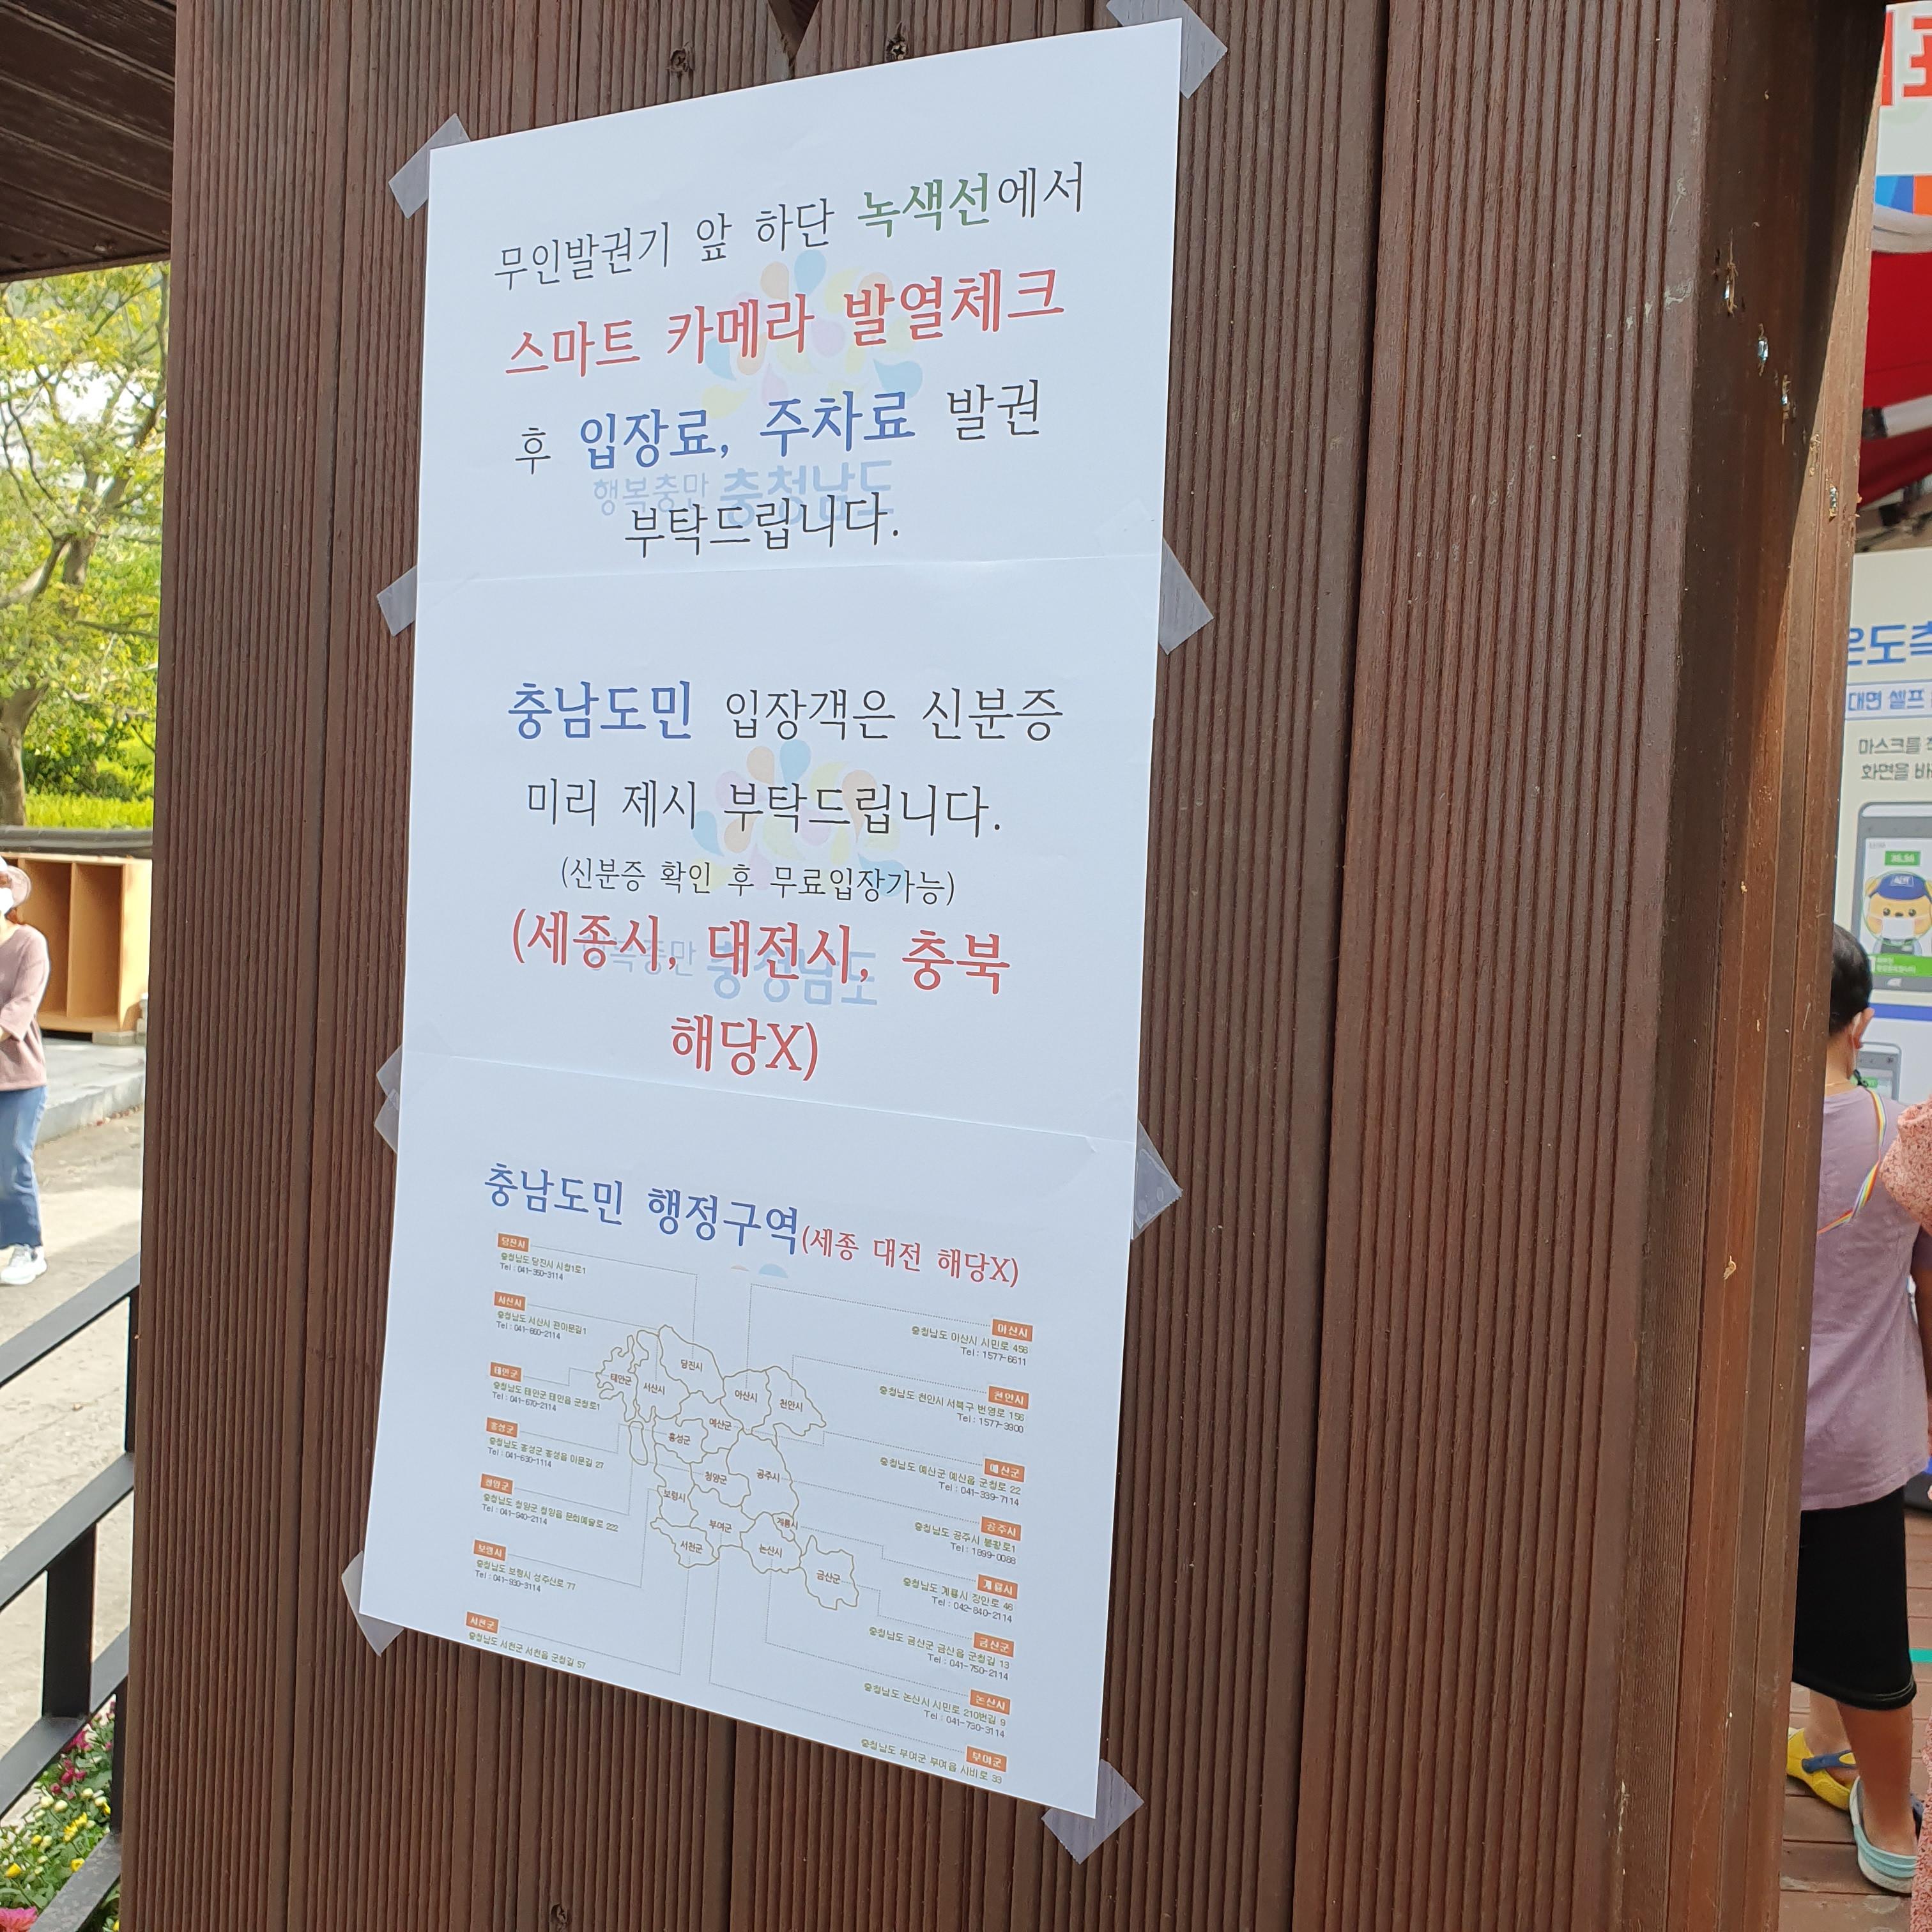 무인발권기 앞 하단 녹색선에서
스마트 카메라 발열체크
후 입장료, 주차료 발권
행복충만 충청남도
부탁드립니다.
충남도민 입장객은 신분증
미리 제시 부탁드립니다.
(신분증 확인 후 무료입장가능)
(세종시, 대전시, 충북
행복충만 충청남도
해당X)
충남도민 행정구역(세종 대전 해당X)
당진시
충청남도 당진시 시청1로1
Tel : 041-350-3114
서산시
충청남도 서산시 관아문길1
Tel : 041-660-2114
태안군
충청남도 태안군 태안읍 군청로1
Tel : 041-670-2114
홍성군
충청남도 홍성군 홍성읍 아문길 27
Tel : 041-630-1114
청양군
충청남도 청양군 청양읍 문화예술로 222
Tel : 041-940-2114
보령시
충청남도 보령시 성주산로 77
Tel : 041-930-3114
서천군
충청남도 서천군 서천읍 군청길 57
당진시
태안군
서산시
아산시
천안시
예산군
홍성군
청양군
공주시
보령시
부여군
계룡시
서천군
논산시
금산군
아산시
충청남도 아산시 시민로 456
Tel : 1577-6611
천안시
충청남도 천안시 서북구 번영로 156
Tel : 1577-3900
예산군
충청남도 예산군 예산읍 군청로 22
Tel : 041-339-7114
공주시
충청남도 공주시 봉황로1
Tel : 1899-0088
계룡시
충청남도 계룡시 장안로 46
Tel : 042-840-2114
금산군
충청남도 금산군 금산읍 군청길 13
Tel : 041-750-2114
논산시
충청남도 논산시 시민로 210번길 9
Tel : 041-730-3114
부여군
충청남도 부여군 부여읍 사비로 33
온도측
대면 셀프
마스크를
화면을 바